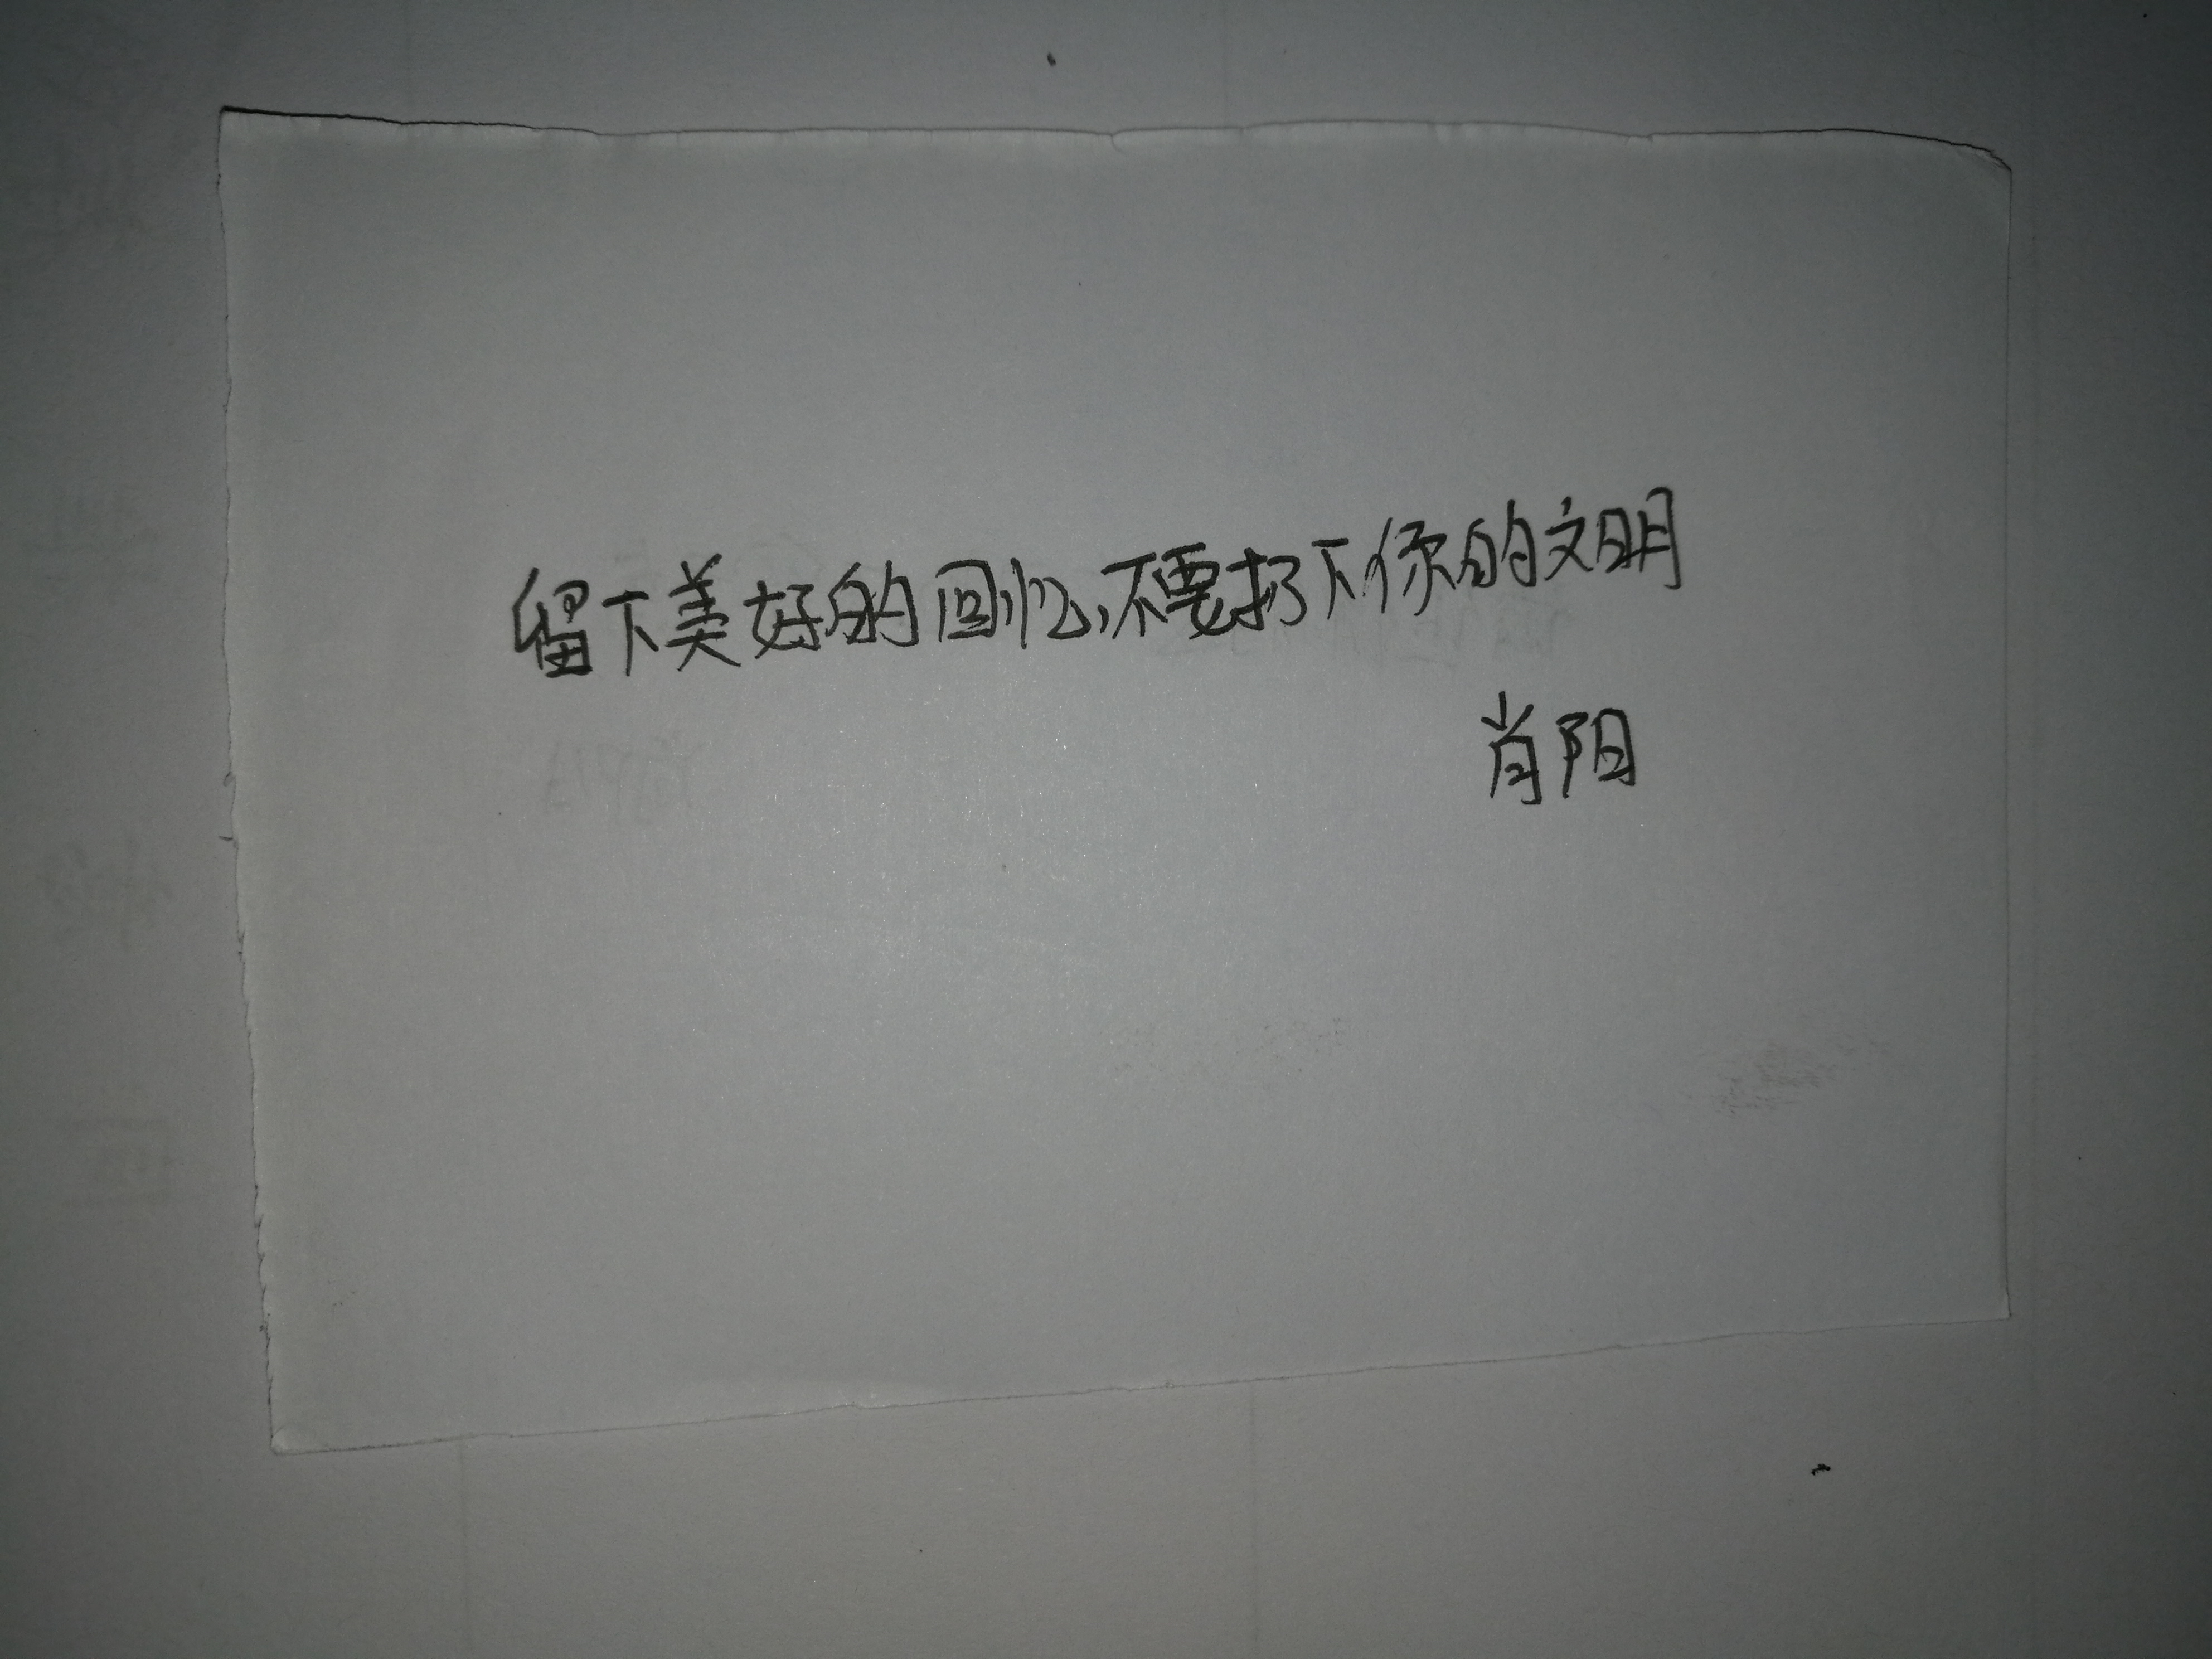 留下美好的回忆,不要扔下你的文明
肖阳